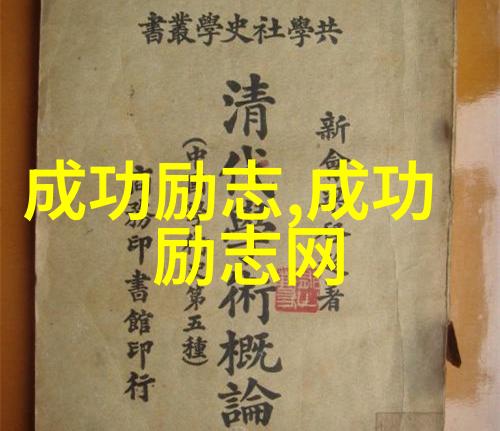 共學社史學叢書
新會著
清代學術概論
(中第五種)
商務印書館印行
成功励志,成功
励志网